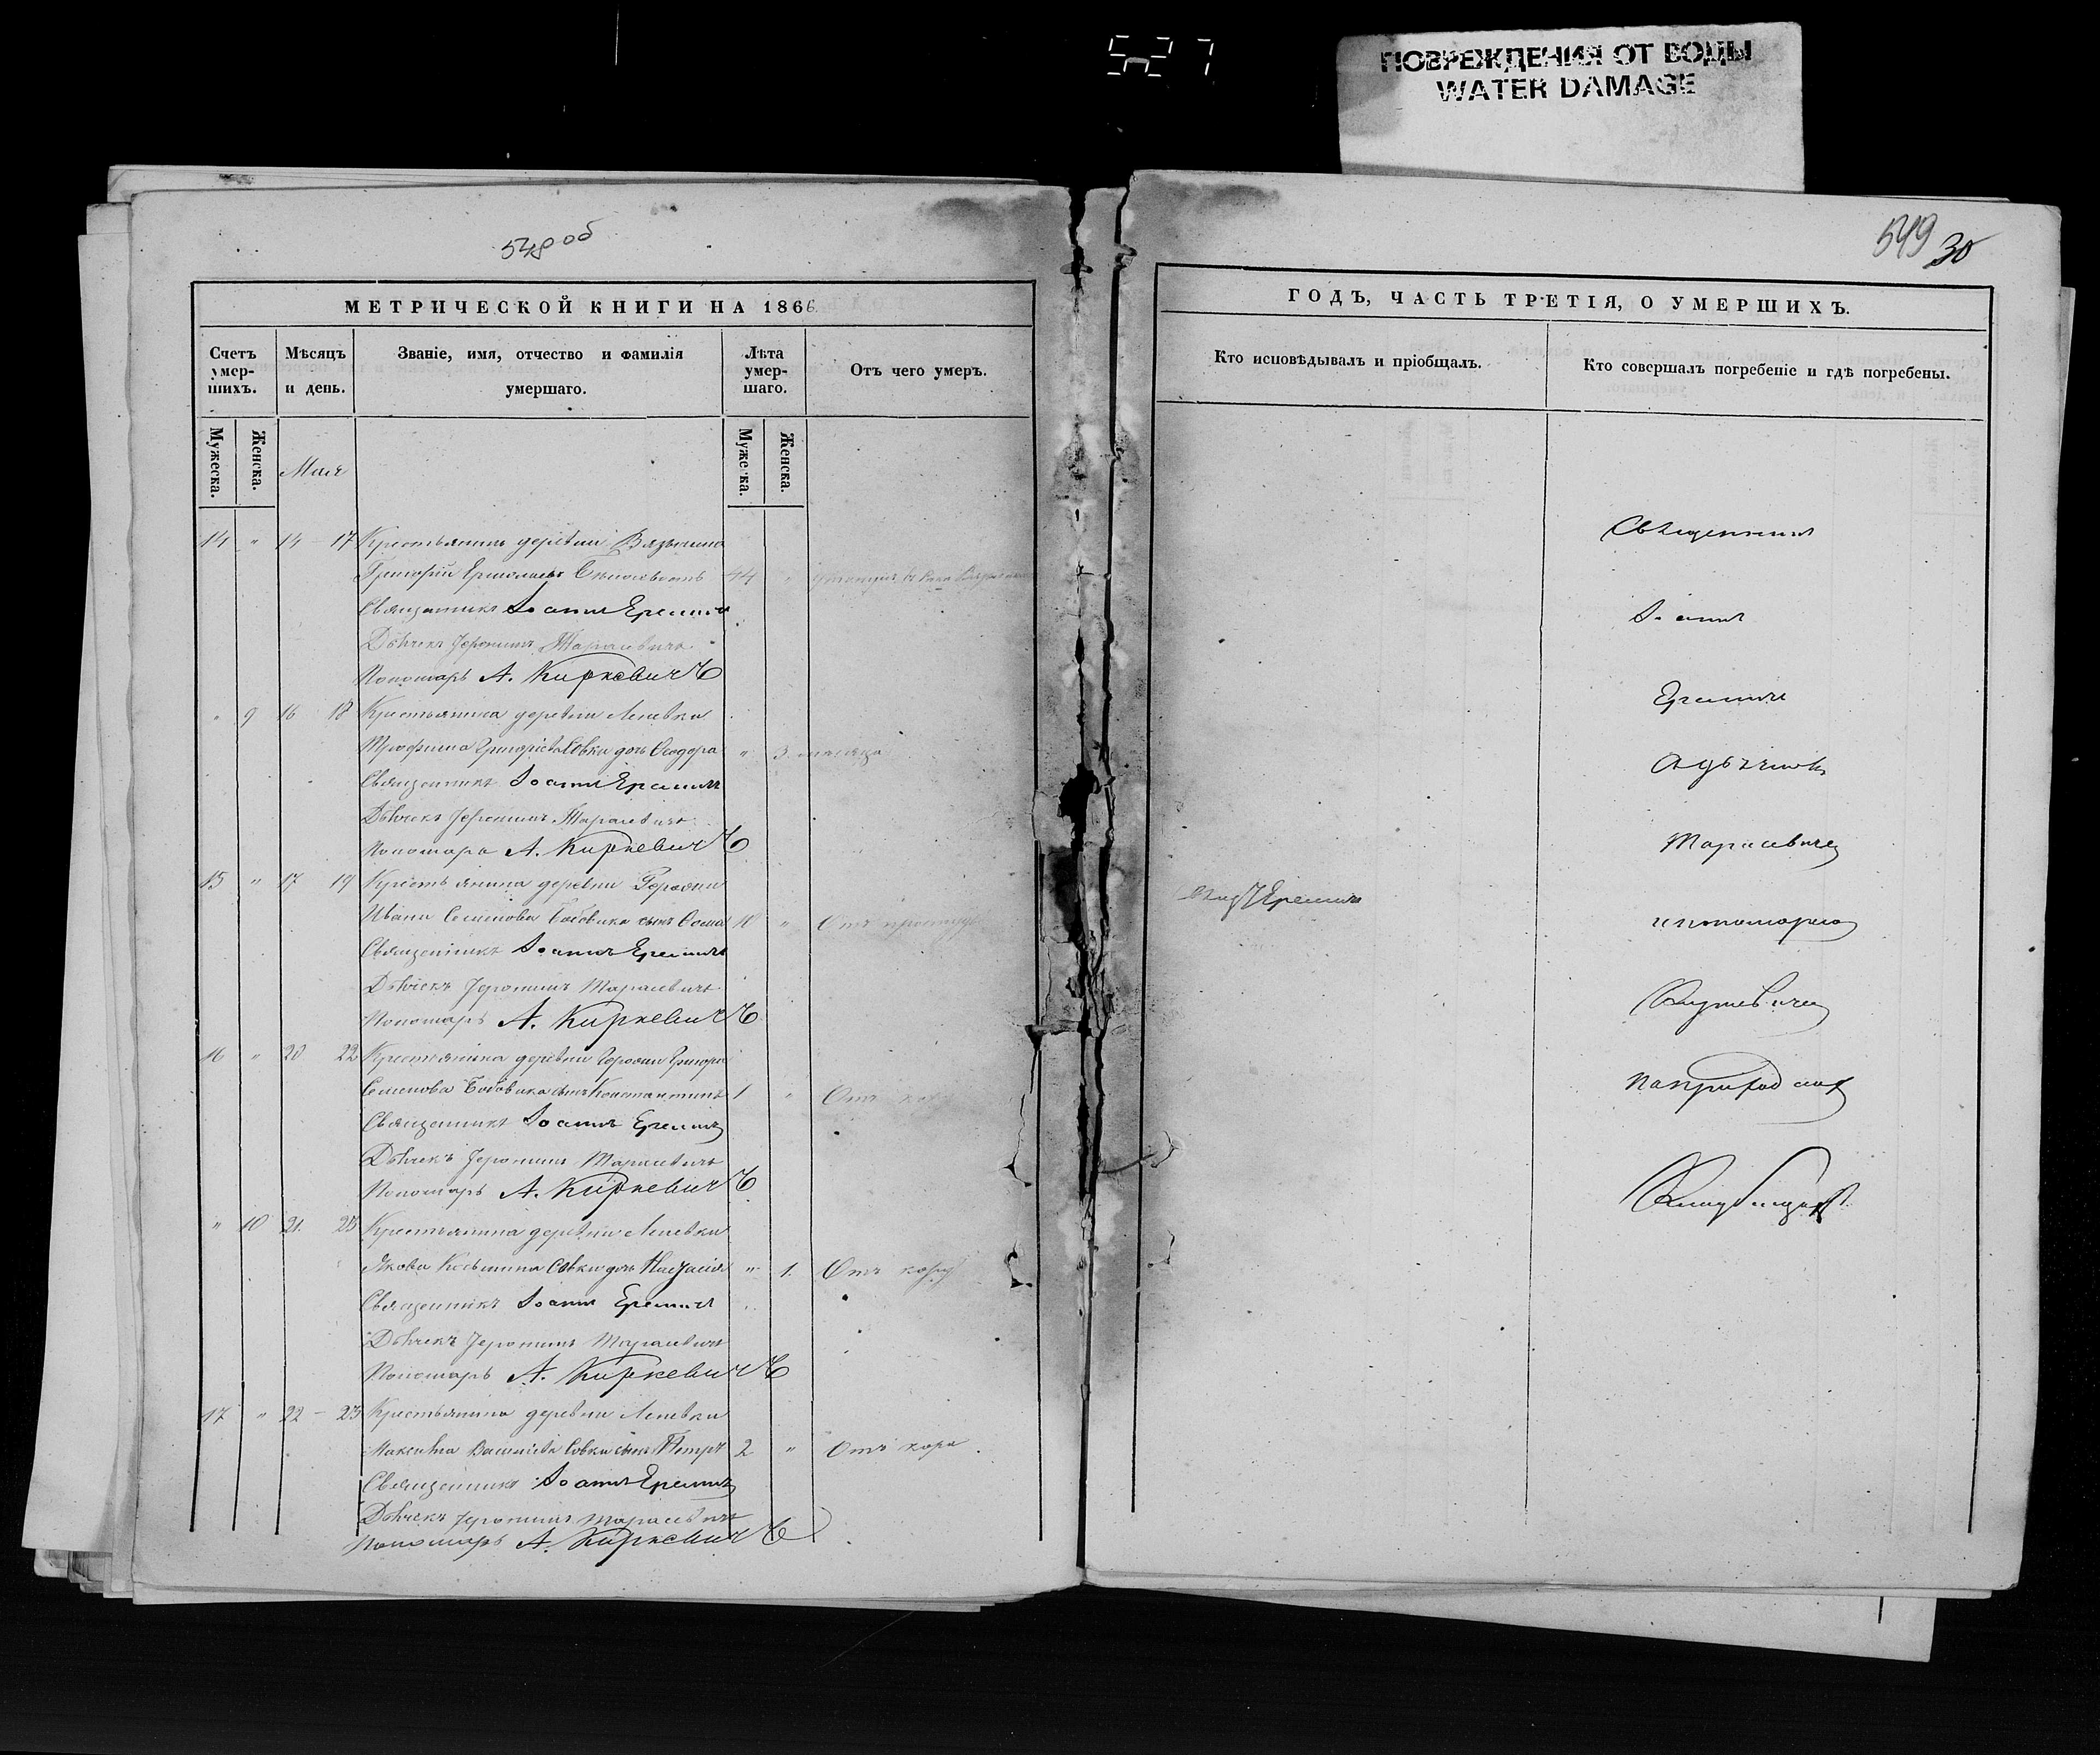 527
ПОВРЕЖДЕНИЯ ОТ ВОДЫ
WATER DAMAGE
548 об
МЕТРИЧЕСКОЙ КНИГИ НА 1866
Счетъ умер-шихъ.
Мѣсяцъ и день.
Званіе, имя, отчество и фамилія умершаго.
Лѣта умер-шаго.
Отъ чего умеръ.
Мужеска.
Женска.
Мая
Мужеска.
Женска.
14 " 14 - 17 Крестьянинъ деревни
Григорій 44 "
Священникъ Іоаннъ Еремичъ
Дьячекъ Іеронимъ Тарасевичъ
Пономарь А. Киркевичъ
" 9 16 18 Крестьянина деревни Леневки
Трофима Григорьева Совки дочь Ѳеодора " 3 мѣсяца
Священникъ Іоаннъ Еремичъ
Дьячекъ Іеронимъ Тарасевичъ
Пономарь А. Киркевичъ
15 " 17 19 Крестьянина деревни
Ивана Семенова Бобовика сынъ Ѳома 10 " Отъ простуды
Священникъ Іоаннъ Еремичъ
Дьячекъ Іеронимъ Тарасевичъ
Пономарь А. Киркевичъ
16 " 20 22 Крестьянина деревни
Семенова Бобовика сынъ Константинъ 1 " Отъ
Священникъ Іоаннъ Еремичъ
Дьячекъ Іеронимъ Тарасевичъ
Пономарь А. Киркевичъ
" 10 21 23 Крестьянина деревни Леневки
Якова Косьмина Совки дочь Настасія " 1. Отъ кору
Священникъ Іоаннъ Еремичъ
Дьячекъ Іеронимъ Тарасевичъ
Пономарь А. Киркевичъ
17 " 22 - 23 Крестьянина деревни Леневки
Максима Совки сынъ Петръ 2 " Отъ кора.
Священникъ Іоаннъ Еремичъ
Дьячекъ Іеронимъ Тарасевичъ
Пономарь А. Киркевичъ
549 30
ГОДЪ, ЧАСТЬ ТРЕТІЯ, О УМЕРШИХЪ.
Кто исповѣдывалъ и пріобщалъ.
Кто совершалъ погребеніе и гдѣ погребены.
Еремичъ
Священникъ
Іоаннъ
Еремичъ
съ дьячкомъ
Тарасевичемъ
и пономаремъ
Киркевичемъ
на приходскомъ
кладбищѣ